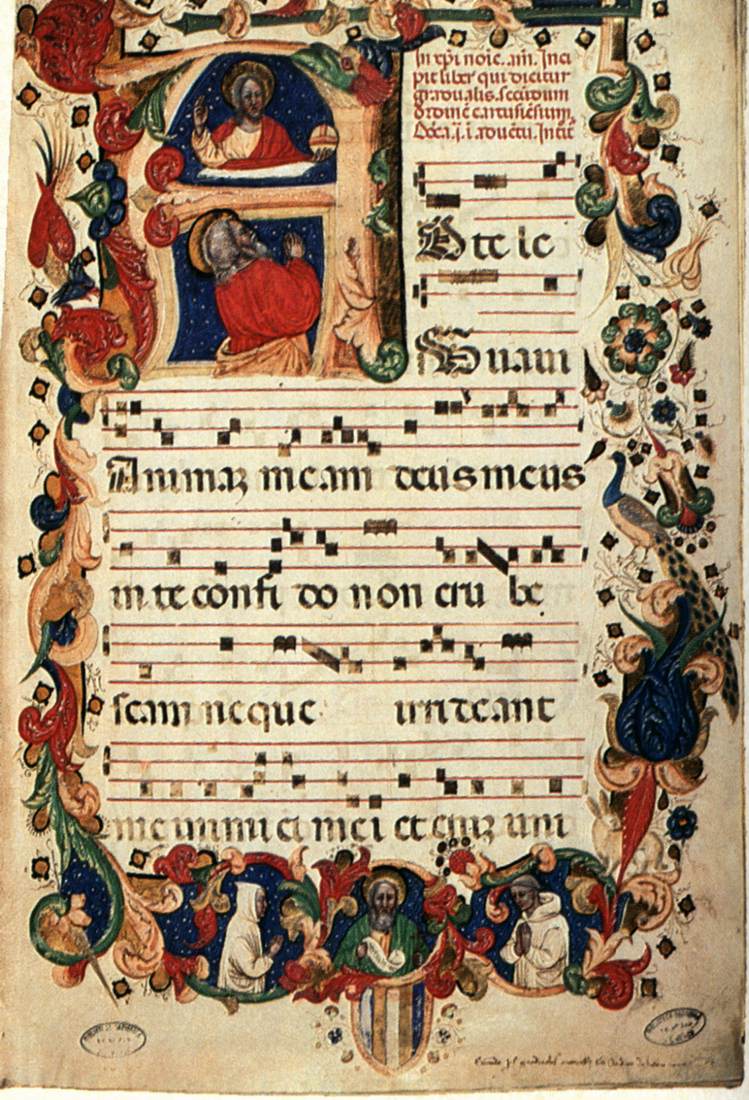 In xp̄i noīe. am̄. Inci
pit liber qui dicitur
gradualis. secūdum
ordinē cartusiēsium,
Dn̄ca. ī. ī aduētu. Intīt
D te le
Uaui
Animaꝫ meam deus meus
in te confi do non eru be
scam neque irrideant
me inimi ci mei et eniꝫ uni